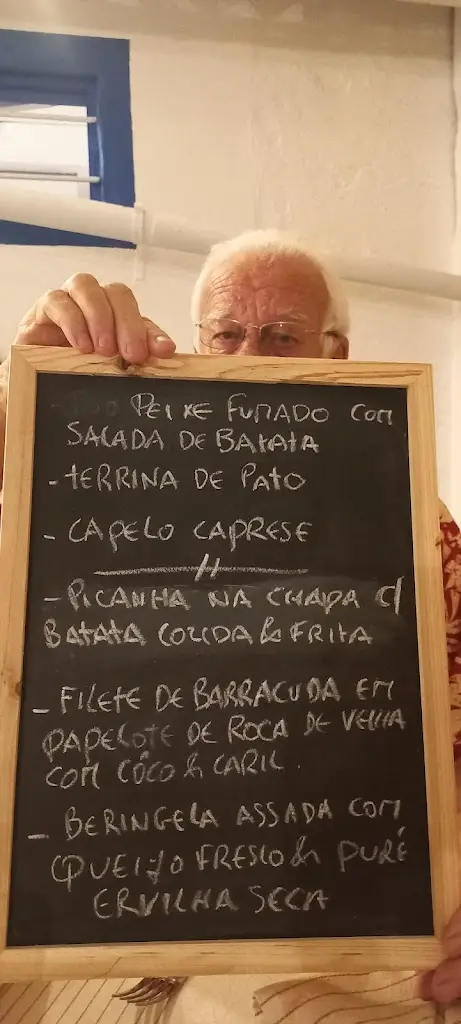 PEIXE FUMADO COM
SALADA DE BATATA
- TERRINA DE PATO
- CAPELO CAPRESE
//
- PICANHA NA CHAPA C/
BATATA COZIDA & FRITA
- FILETE DE BARRACUDA EM
PAPELOTE DE ROCA DE VELHA
COM CÔCO & CARIL.
- BERINGELA ASSADA COM
QUEIJO FRESCO & PURÉ
ERVILHA SECA